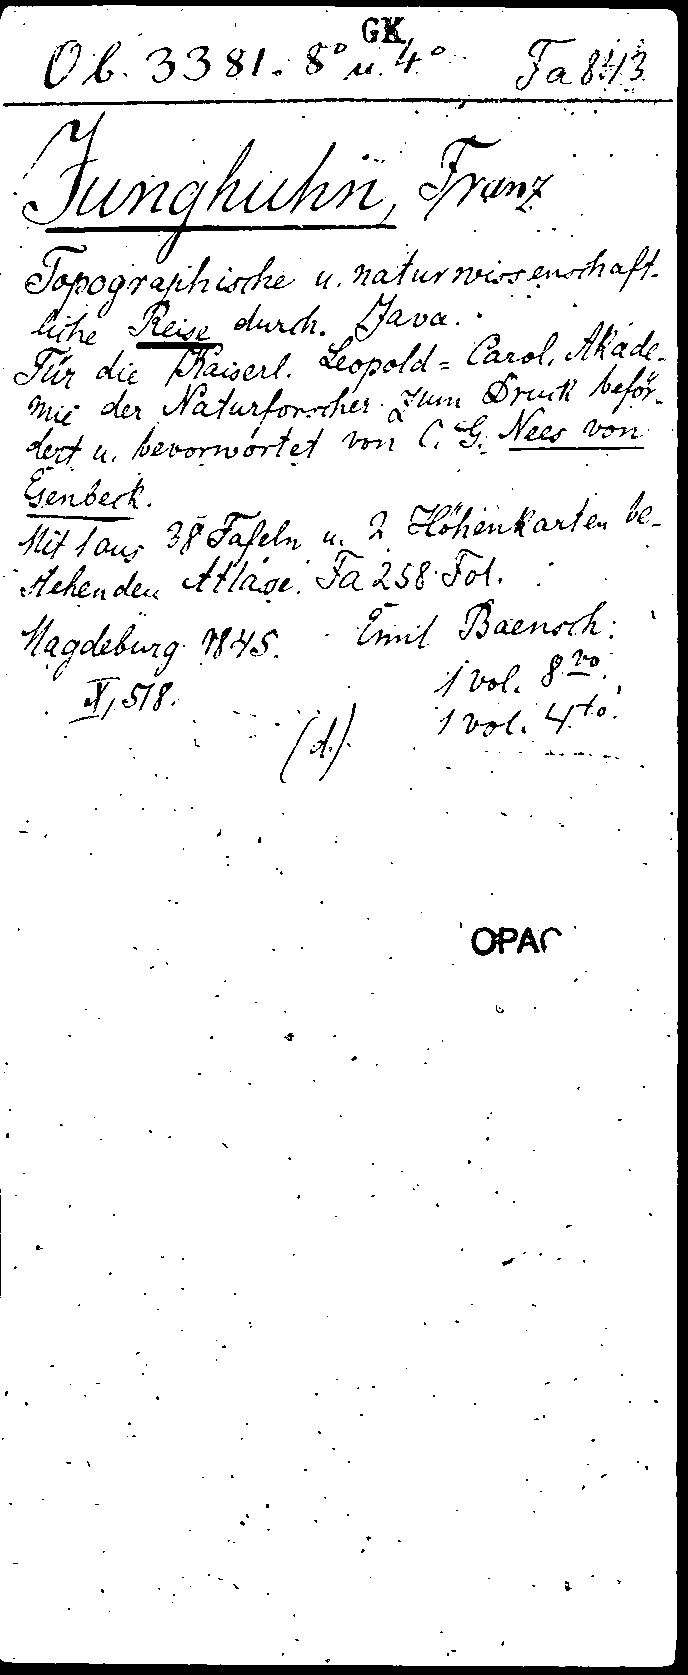 GK
Ob. 3381. 8° u. 4° Fa 843
Junghuhn, Franz
Topographische u. naturwissenschaft-
liche Reise durch. Java.
Für die Kaiserl. Leopold= Carol. Akade-
mie der Naturforscher zum Druck beför-
dert u. bevorwortet von C. G. Nees von
Esenbeck.
Mit 1 aus 38 Tafeln u. 2 Höhenkarten be-
stehenden Atlase. Fa 258 Fol.
Magdeburg 1845. Emil Baensch.
X, 518. 1 vol. 8vo.
(d.) 1 vol. 4to.
OPAC